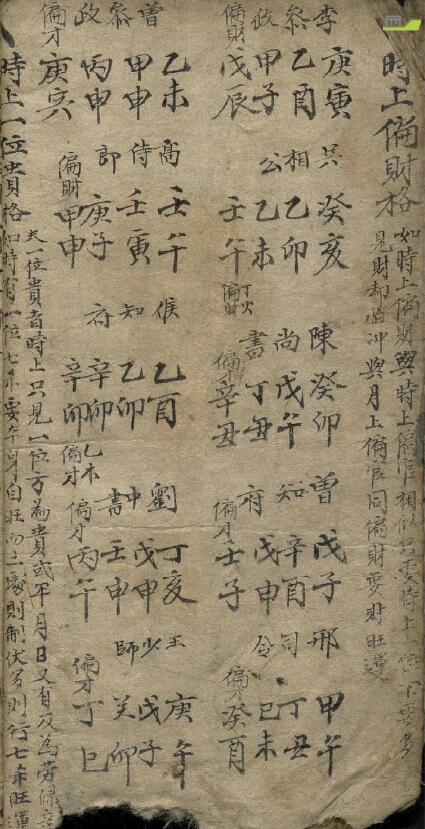 時上偏財格
如時上偏財與時上偏官相似只要時上一位不要多
見財却怕冲與月上偏官同偏財要財旺運
李庚寅吴癸亥陳癸卯曽戊子邢甲午
參乙酉相乙卯尚戊午知辛酉司丁丑
政甲子公乙未書丁丑府戊申令己未
偏財戊辰壬午丁火偏財偏才辛丑偏才壬子偏才癸酉
曽乙未高壬午侯乙酉劉丁亥王庚午
參甲申侍壬寅知乙卯中戊申少戊子
政丙申郎庚子府辛卯書壬申師癸卯
偏才庚寅偏財甲申辛卯乙木偏才偏才丙午偏才丁巳
時上一位貴格
夫一位貴者時上只見一位方為貴或年月日又有反為劳碌辛
如時有一位七杀要本身自旺而三處則制伏多則行七杀旺運